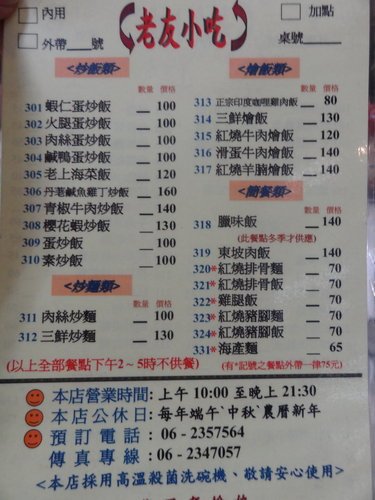 內用
外帶 號
老友小吃
加點
桌號
<炒飯類>
數量 價格
301 蝦仁蛋炒飯 100
302 火腿蛋炒飯 100
303 肉絲蛋炒飯 100
304 鹹鴨蛋炒飯 100
305 老上海菜飯 120
306 丹老鹹魚雞丁炒飯 160
307 青椒牛肉炒飯 140
308 櫻花蝦炒飯 130
309 蛋炒飯 80
310 素炒飯 100
<炒麵類>
數量 價格
311 肉絲炒麵 100
312 三鮮炒麵 130
<燴飯類>
數量 價格
313 正宗印度咖哩雞肉飯 80
314 三鮮燴飯 130
315 紅燒牛肉燴飯 120
316 滑蛋牛肉燴飯 140
317 紅燒羊腩燴飯 140
<簡餐類>
數量 價格
318 臘味飯 140
(此餐點冬季才供應)
319 東坡肉飯 140
320*紅燒排骨麵 70
321*紅燒排骨飯 70
322*雞腿飯 70
323*紅燒豬腳麵 70
324*紅燒豬腳飯 70
331*海產麵 65
(以上全部餐點下午2~5時不供餐)
(有*記號之餐點外帶一律75元)
本店營業時間: 上午 10:00 至晚上 21:30
本店公休日: 每年端午、中秋、農曆新年
預訂電話 : 06 - 2357564
傳真專線 : 06 - 2347057
<本店採用高溫殺菌洗碗機、敬請安心使用>